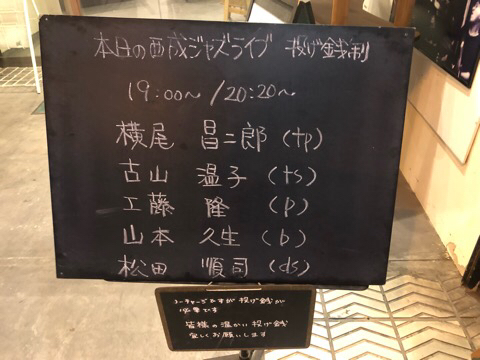 本日の西成ジャズライブ 投げ銭制
19:00〜/20:20〜
横尾 昌二郎(tp)
古山 温子(ts)
工藤 隆(p)
山本 久生(b)
松田 順司(ds)
ノーチャージですが投げ銭が
必要です
皆様の温かい投げ銭
宜しくお願いします